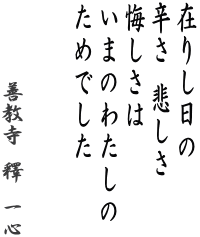 在りし日の
辛さ 悲しさ
悔しさは
いまのわたしの
ためでした
善教寺 釋 一心